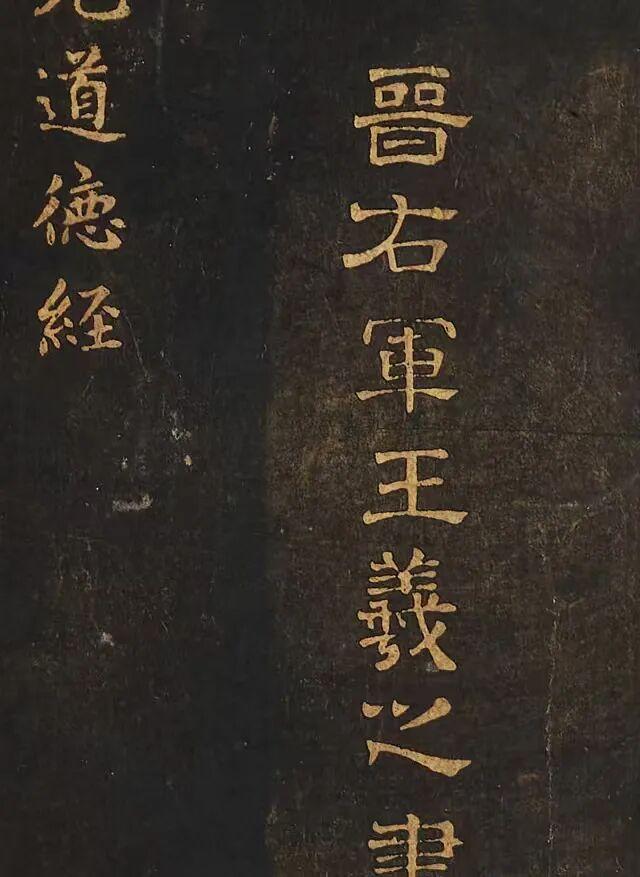 晉右軍王羲之書
道德經